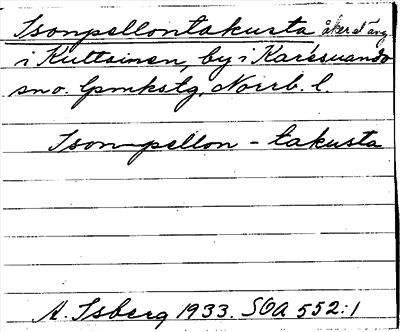 Isonpellontakusta åker o. äng
i Kuttainen, by i Karesuando
sn o. lpmkstg, Norrb. l.
Ison-pellon-takusta
A. Isberg 1933. SOA 552:1